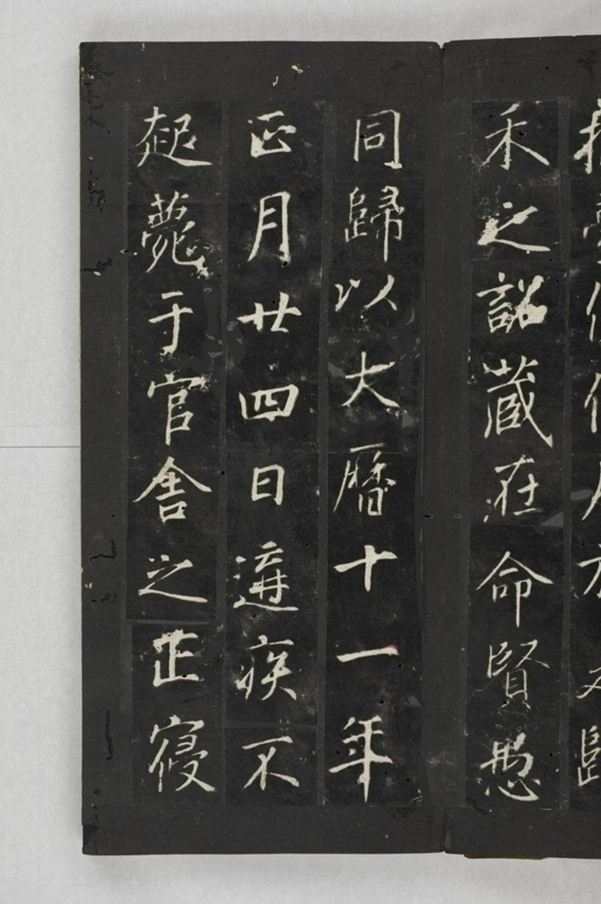 禾之詔藏命賢愚
同歸以大曆十一年
正月廿四日遘疾不
起薨于官舍之正寢